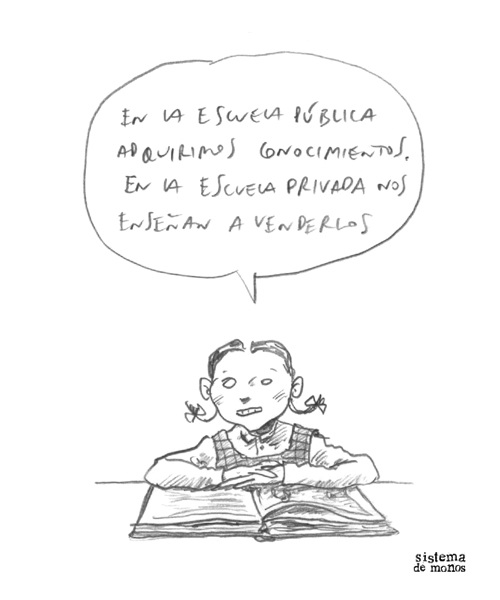 EN LA ESCUELA PÚBLICA
ADQUIRIMOS CONOCIMIENTOS.
EN LA ESCUELA PRIVADA NOS
ENSEÑAN A VENDERLOS
sistema
de monos